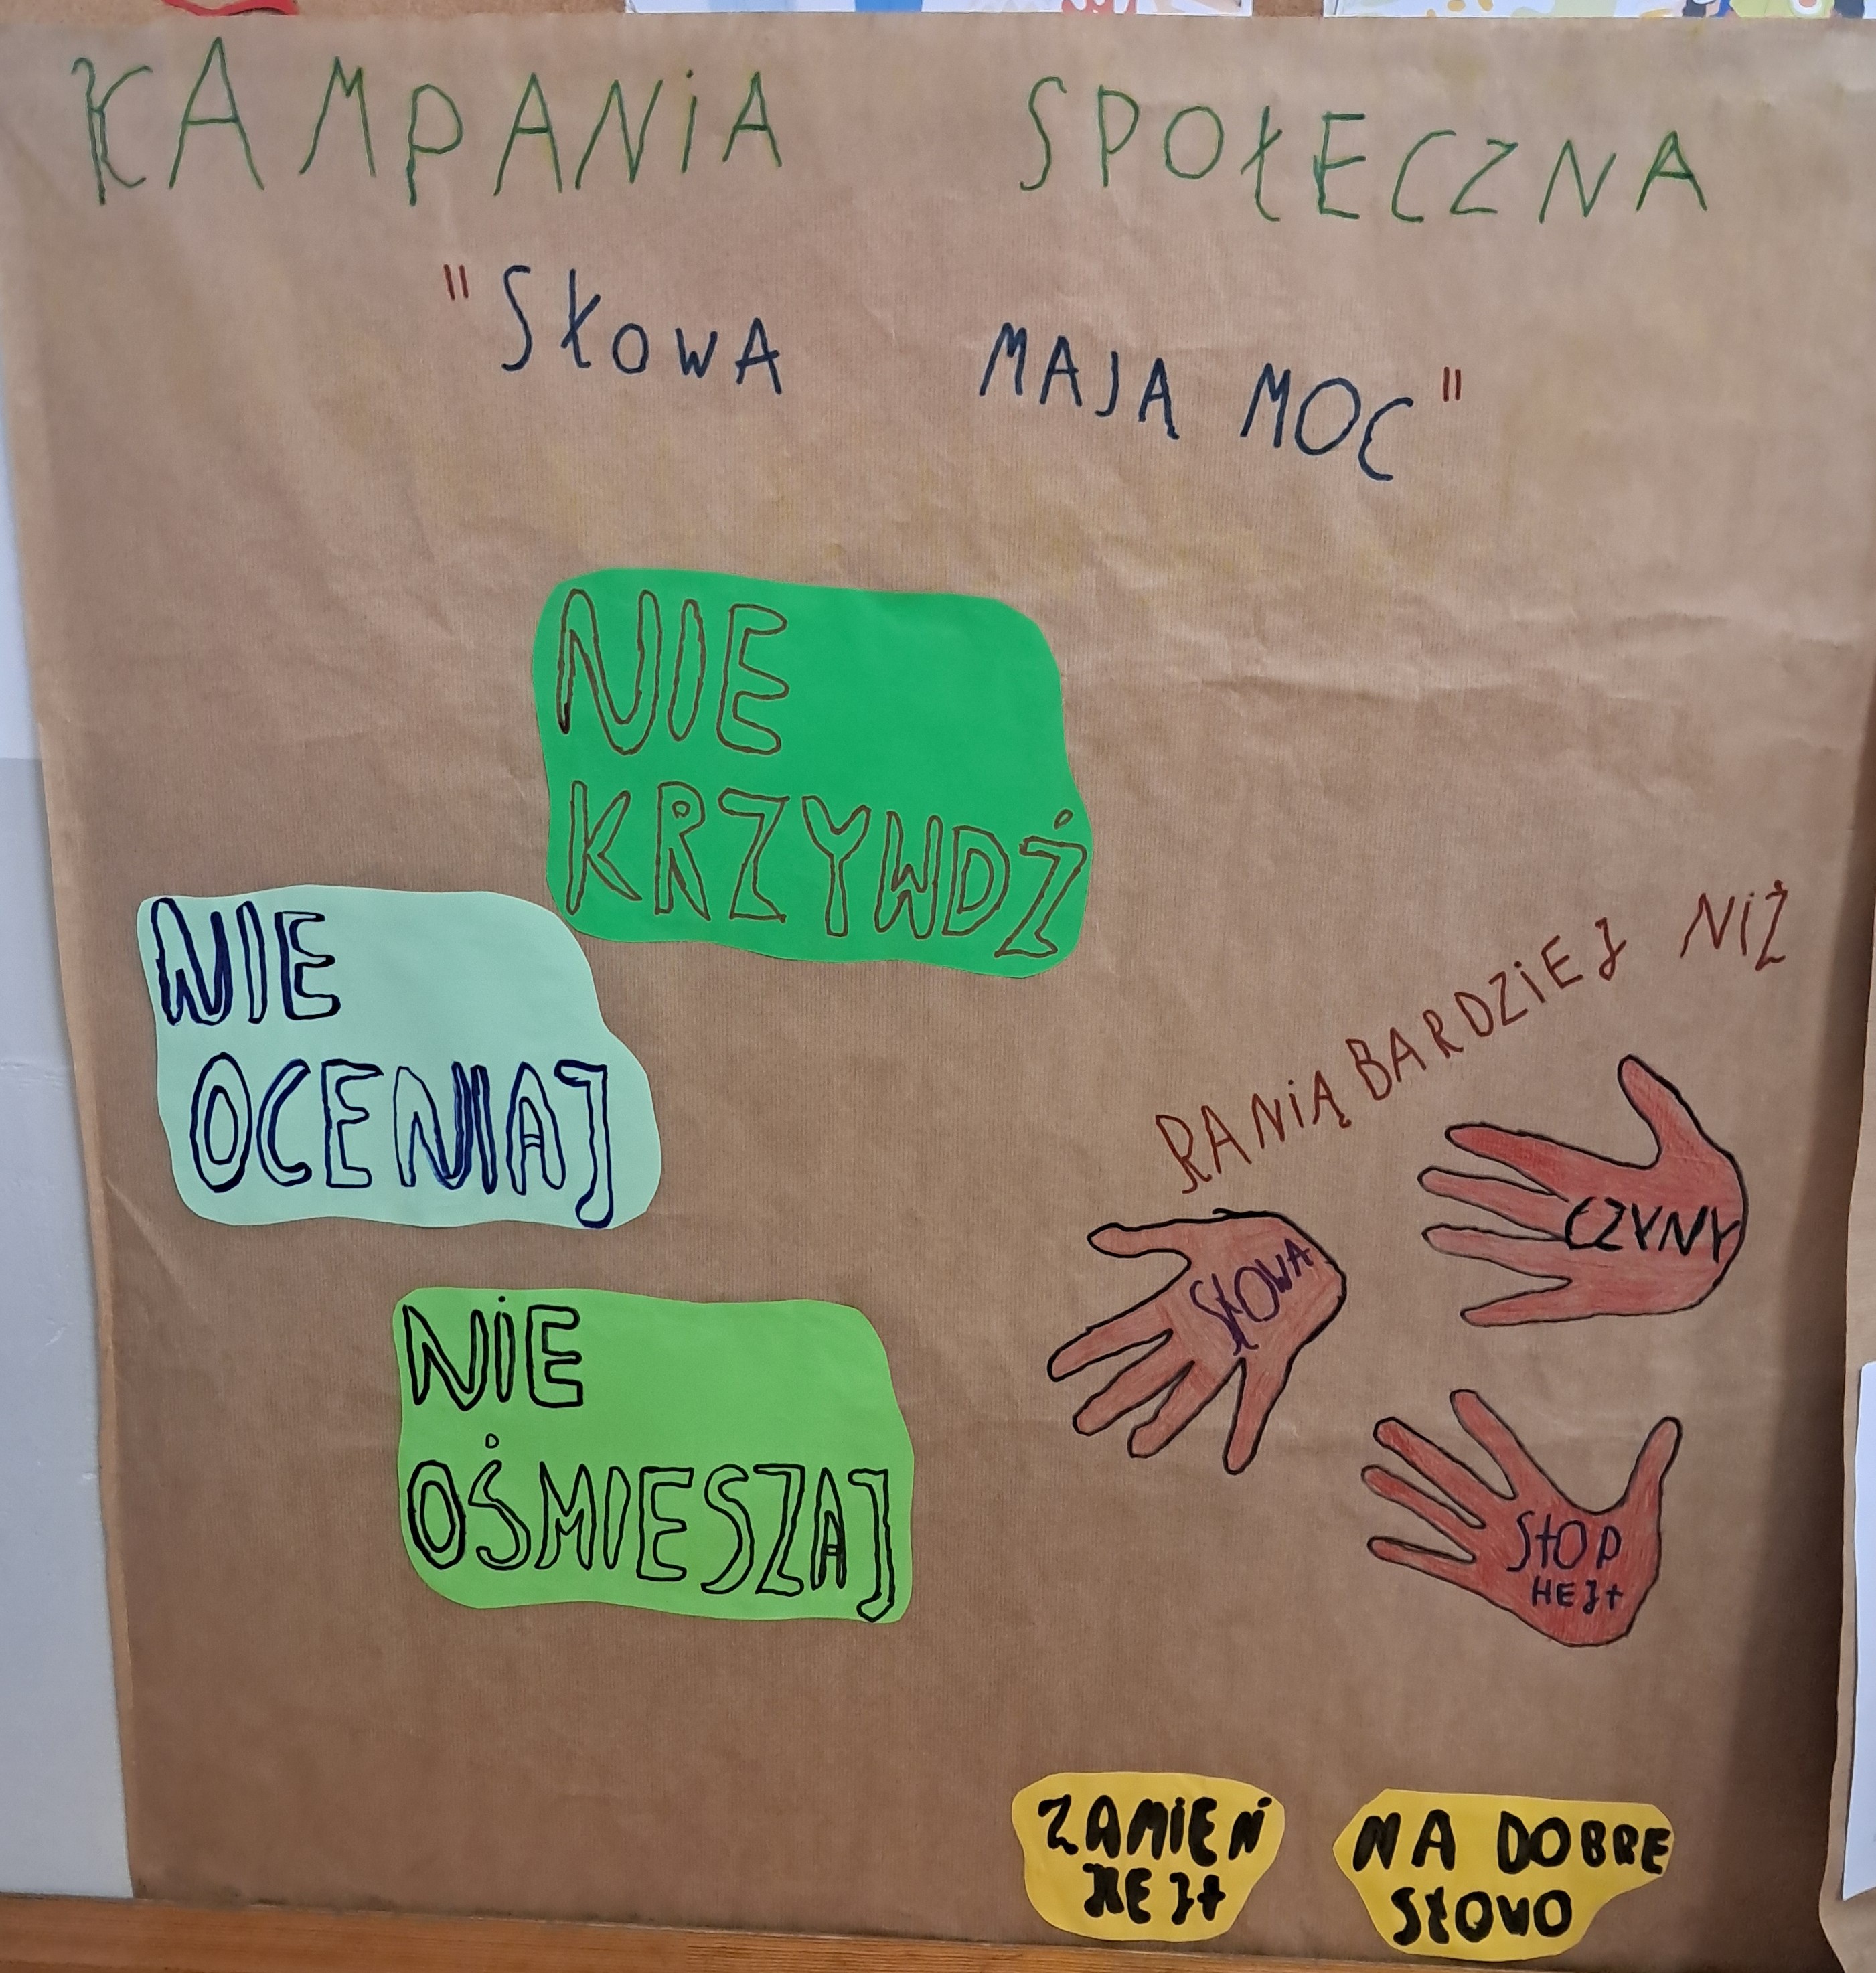 KAMPANiA SPOŁECZNA
"SŁOWA MAJĄ MOC"
NIE
KRZYWDŹ
NIE
OCENIAJ
RANiĄ BARDZiEJ NiŻ
CZYNY
SŁOWA
NiE
OŚMIESZAJ
StOP
HEJt
ZAMIEŃ
HEJt
NA DOBRE
SŁOWO